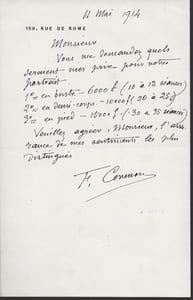 11 Mai 1914
159, RUE DE ROME
Monsieur
Vous me demandez quels
seraient mes prix pour votre
portrait –
1º en buste – 6000 f (10 à 12 séances)
2º en demi-corps – 10000 f (20 à 25)
3º en pied – 15000 f (30 à 35 séances)
Veuillez agréer, Monsieur, l'assu
rance de mes sentiments les plus
distingués
F. Cormon